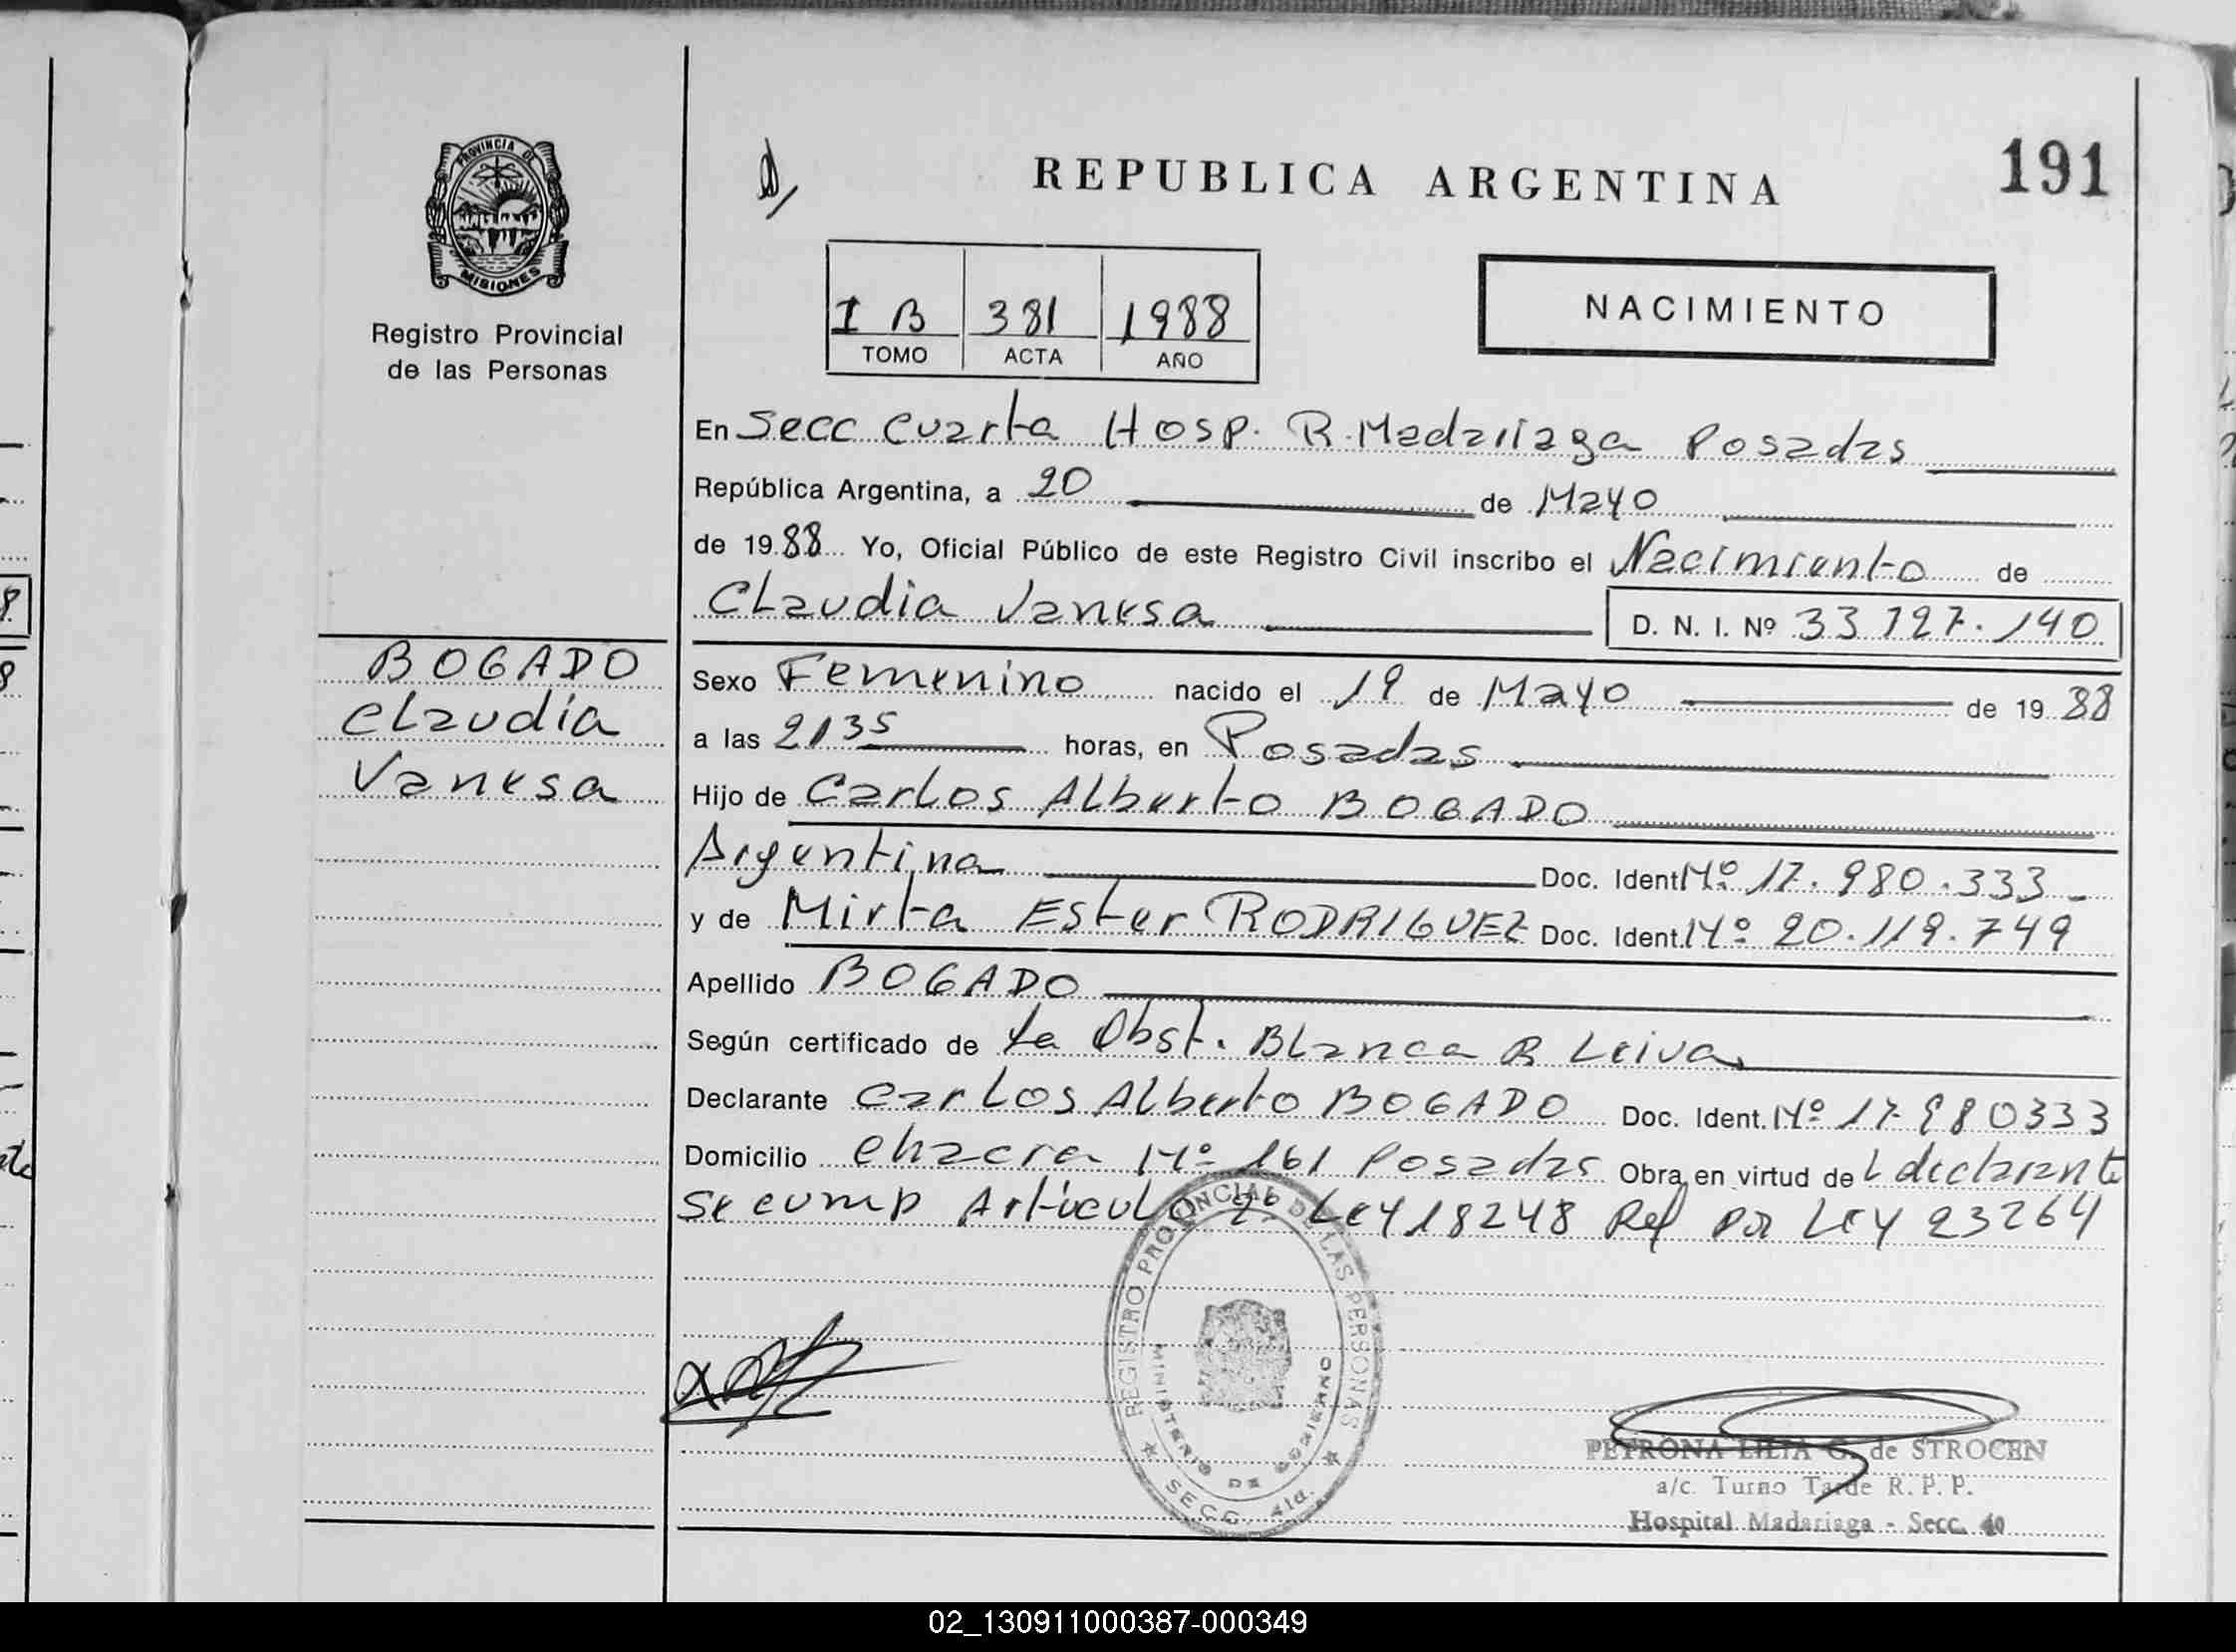 PROVINCIA DE
MISIONES
Registro Provincial
de las Personas
BOGADO
Claudia
Vanesa
REPUBLICA ARGENTINA
191
I B 381 1988
TOMO ACTA AÑO
NACIMIENTO
En Secc Cuarta Hosp. R. Madariaga Posadas
República Argentina, a 20 de Mayo
de 1988 Yo, Oficial Público de este Registro Civil inscribo el Nacimiento de
Claudia Vanesa D. N. I. Nº 33.727.140
Sexo Femenino nacido el 19 de Mayo de 1988
a las 2135 horas, en Posadas
Hijo de Carlos Alberto BOGADO
Argentina Doc. Ident Nº 17.980.333
y de Mirta Ester RODRIGUEZ Doc. Ident. Nº 20.119.749
Apellido BOGADO
Según certificado de la Obst. Blanca R Leiva
Declarante Carlos Alberto BOGADO Doc. Ident. Nº 17980333
Domicilio Chacra Nº 161 Posadas Obra en virtud de L declarante
Se cump Articulo 2º Ley 18248 Ref por Ley 23264
REGISTRO PROVINCIAL DE LAS PERSONAS
MINISTERIO DE GOBIERNO
SECC. 4ta.
PETRONA LILIA G. de STROCEN
a/c. Turno Tarde R. P. P.
Hospital Madariaga - Secc. 4a
02_130911000387-000349